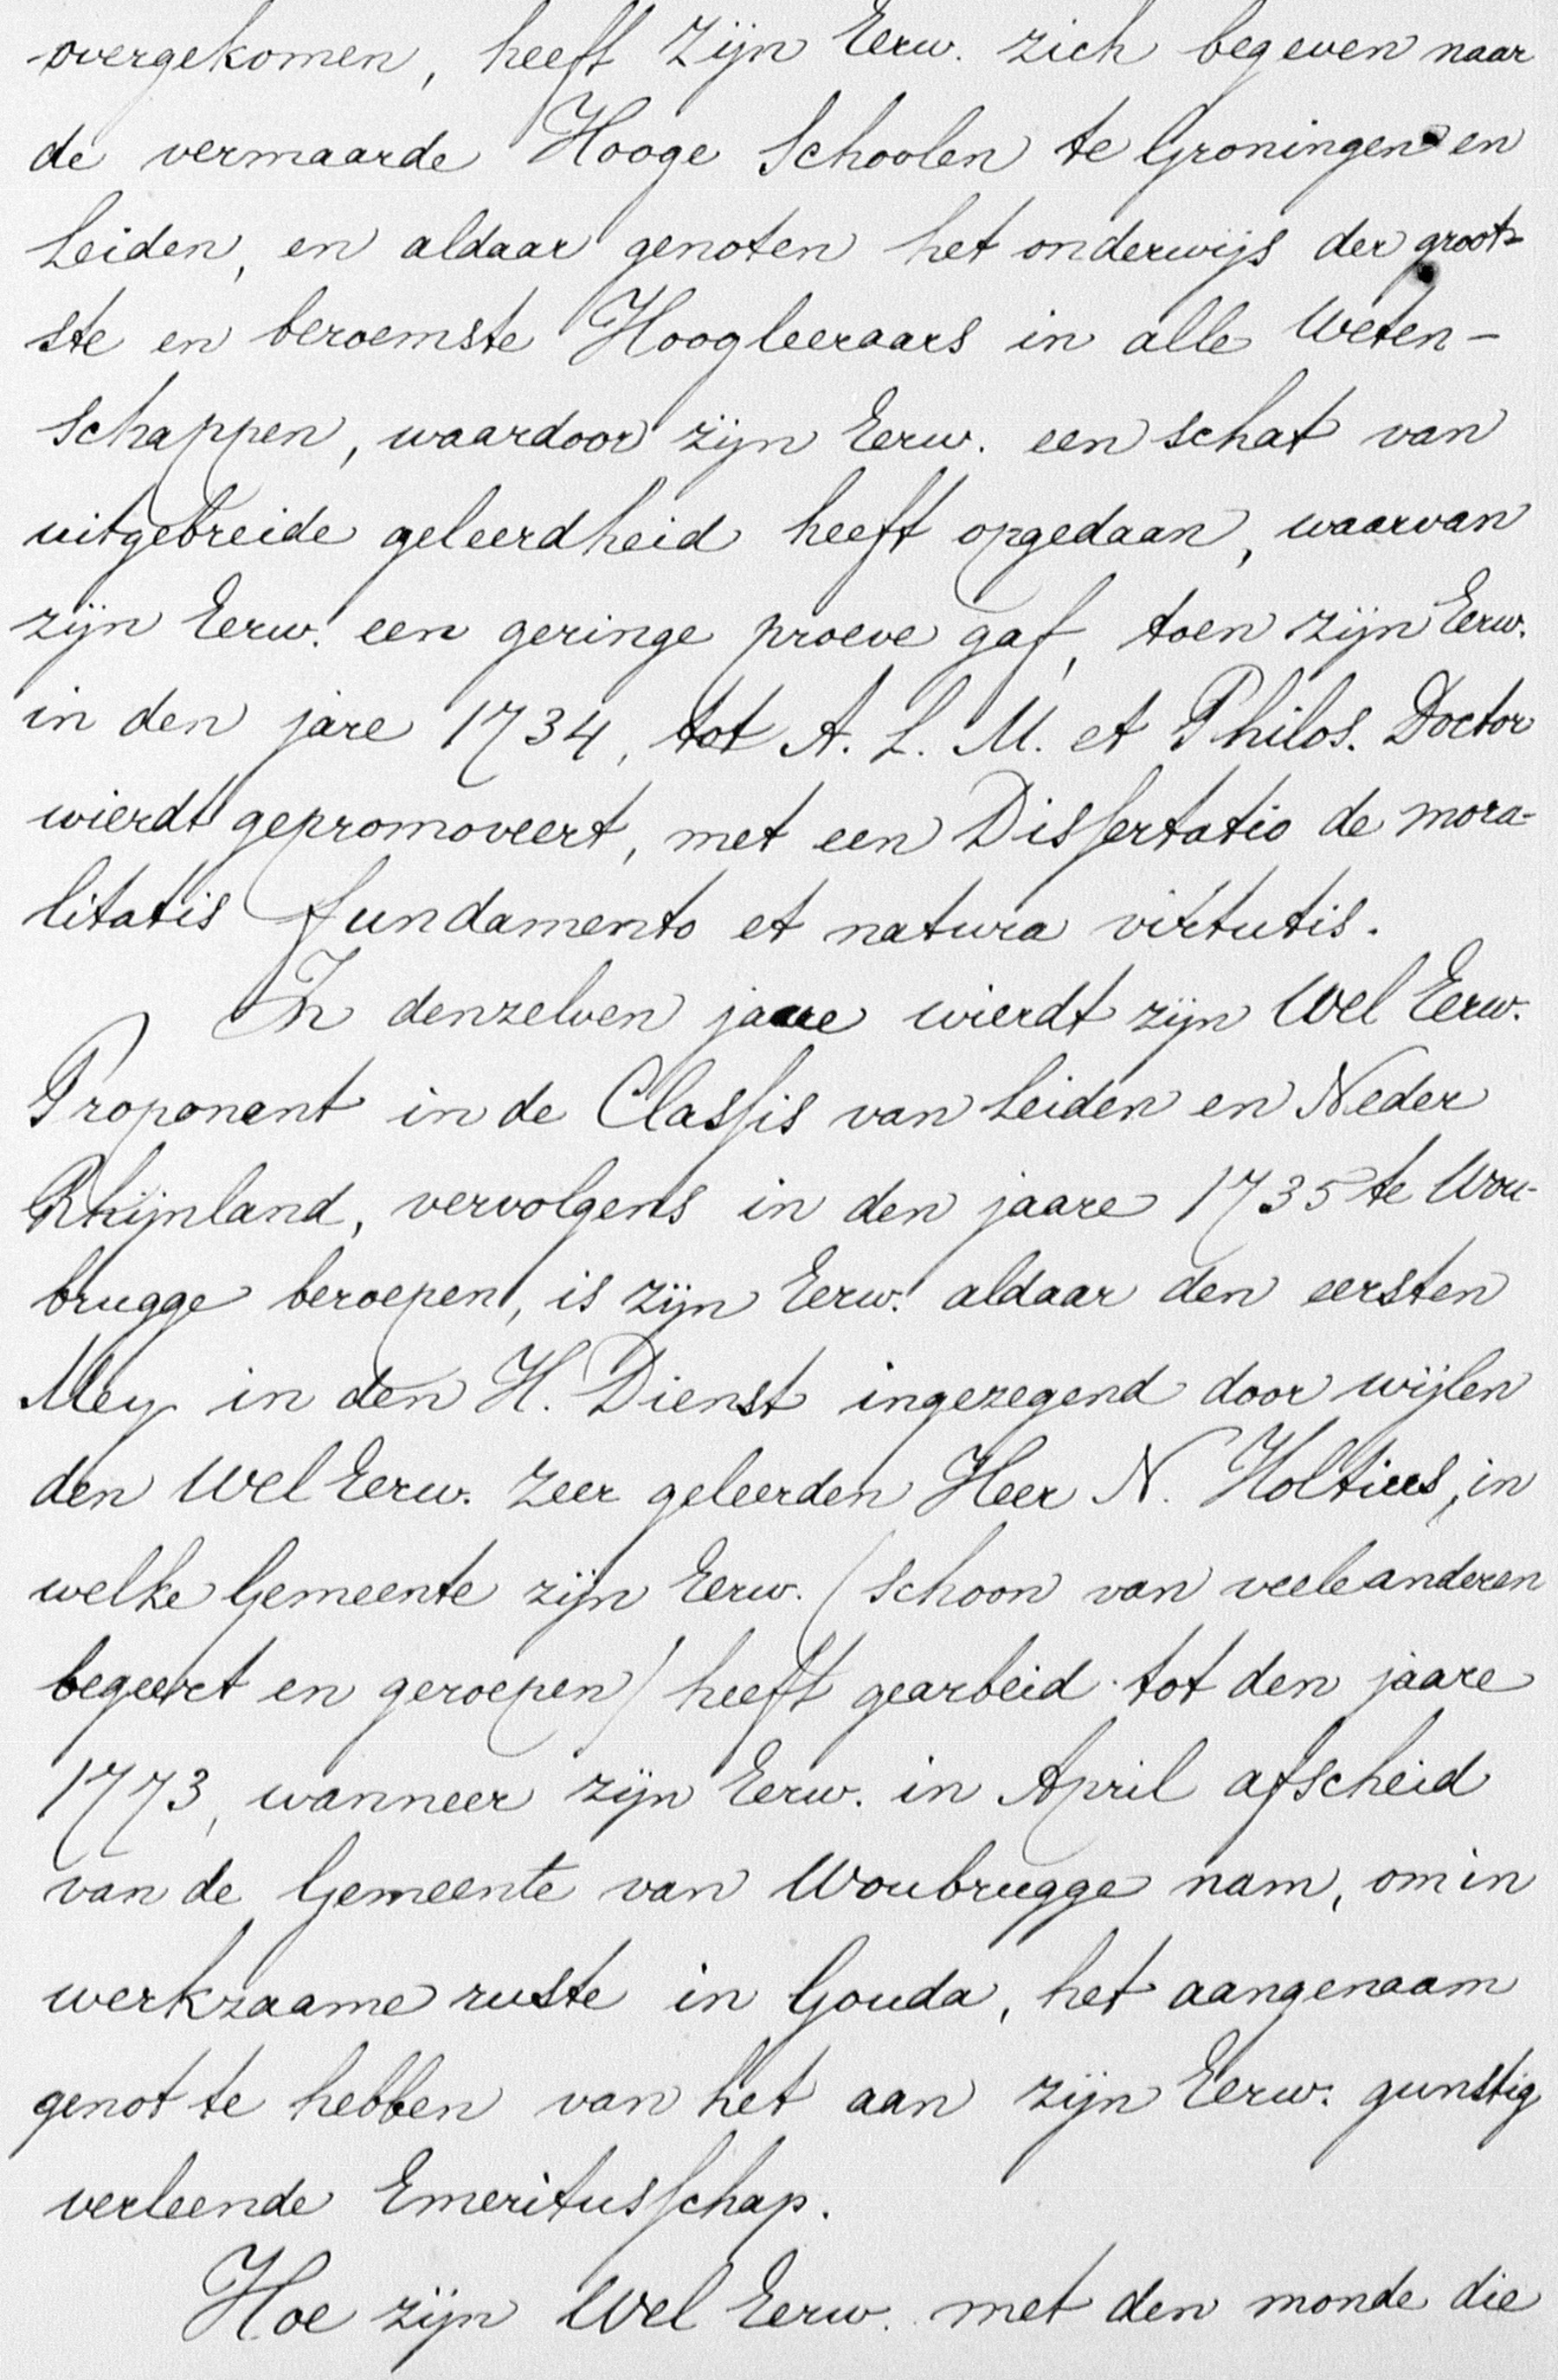 overgekomen, heeft Zijn Eerw. zich begeven naar
de vermaarde Hooge Schoolen te Groningen en
Leiden, en aldaar genoten het onderwijs der groot-
ste en beroemste Hoogleeraars in alle Weten-
schappen, waardoor zijn Eerw. een schat van
uitgebreide geleerdheid heeft opgedaan, waarvan
zijn Eerw. een geringe proeve gaf, toen zijn Eerw.
in den jare 1734, tot A. L. M. et Philos. Doctor
wierdt gepromoveert, met een Dissertatio de mora-
litatis fundamento et natura virtutis.
In denzelven jaare wierdt zijn Wel Eerw.
Proponent in de Classis van Leiden en Neder
Rhijnland, vervolgens in den jaare 1735 te Wou-
brugge beroepen, is zijn Eerw. aldaar den eersten
Mey in den H. Dienst ingezegend door wijlen
den Wel Eerw. Zeer geleerden Heer N. Holtius, in
welke Gemeente zijn Eerw. (schoon van veele anderen
begeert en geroepen) heeft gearbeid tot den jaare
1773, wanneer zijn Eerw. in April afscheid
van de Gemeente van Woubrugge nam, om in
werkzaame ruste in Gouda, het aangenaam
genot te hebben van het aan zijn Eerw. gunstig
verleende Emeritusschap.
Hoe zijn Wel Eerw. met den monde die